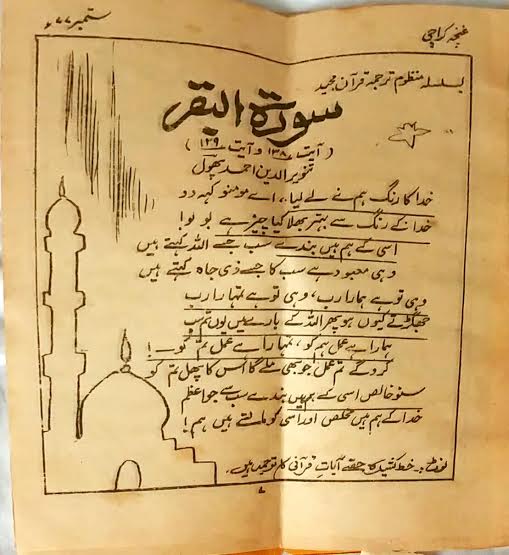 غنچہ کراچی
ستمبر ۷۷ء
بسلسلہ منظوم ترجمہ قرآن مجید
سورۃ البقر
(آیت ۱۳۸ و آیت ۱۳۹)
تنویر الدین احمد پھول
خدا کا رنگ ہم نے لے لیا، اے مومنو کہہ دو
خدا کے رنگ سے بہتر بھلا کیا چیز ہے بولو!
اسی کے ہم ہیں بندے سب جسے اللہ کہتے ہیں
وہی معبود ہے سب کا جسے ذی جاہ کہتے ہیں
وہی تو ہے ہمارا رب، وہی تو ہے تمہارا رب
جھگڑتے کیوں ہو پھر اللہ کے بارے میں یوں تم سب
ہمارا ہے عمل ہم کو، تمہارا ہے عمل تم کو!
کرو گے تم عمل جو بھی ملے گا اس کا پھل تم کو
سنو خالص اسی کے ہم ہیں بندے سب سے جو اعظم
خدا کے ہم ہیں مخلص اور اسی کو مانتے ہیں ہم!
نوٹ:۔ خط کشیدہ حصے آیات قرآنی کا ترجمہ ہیں۔